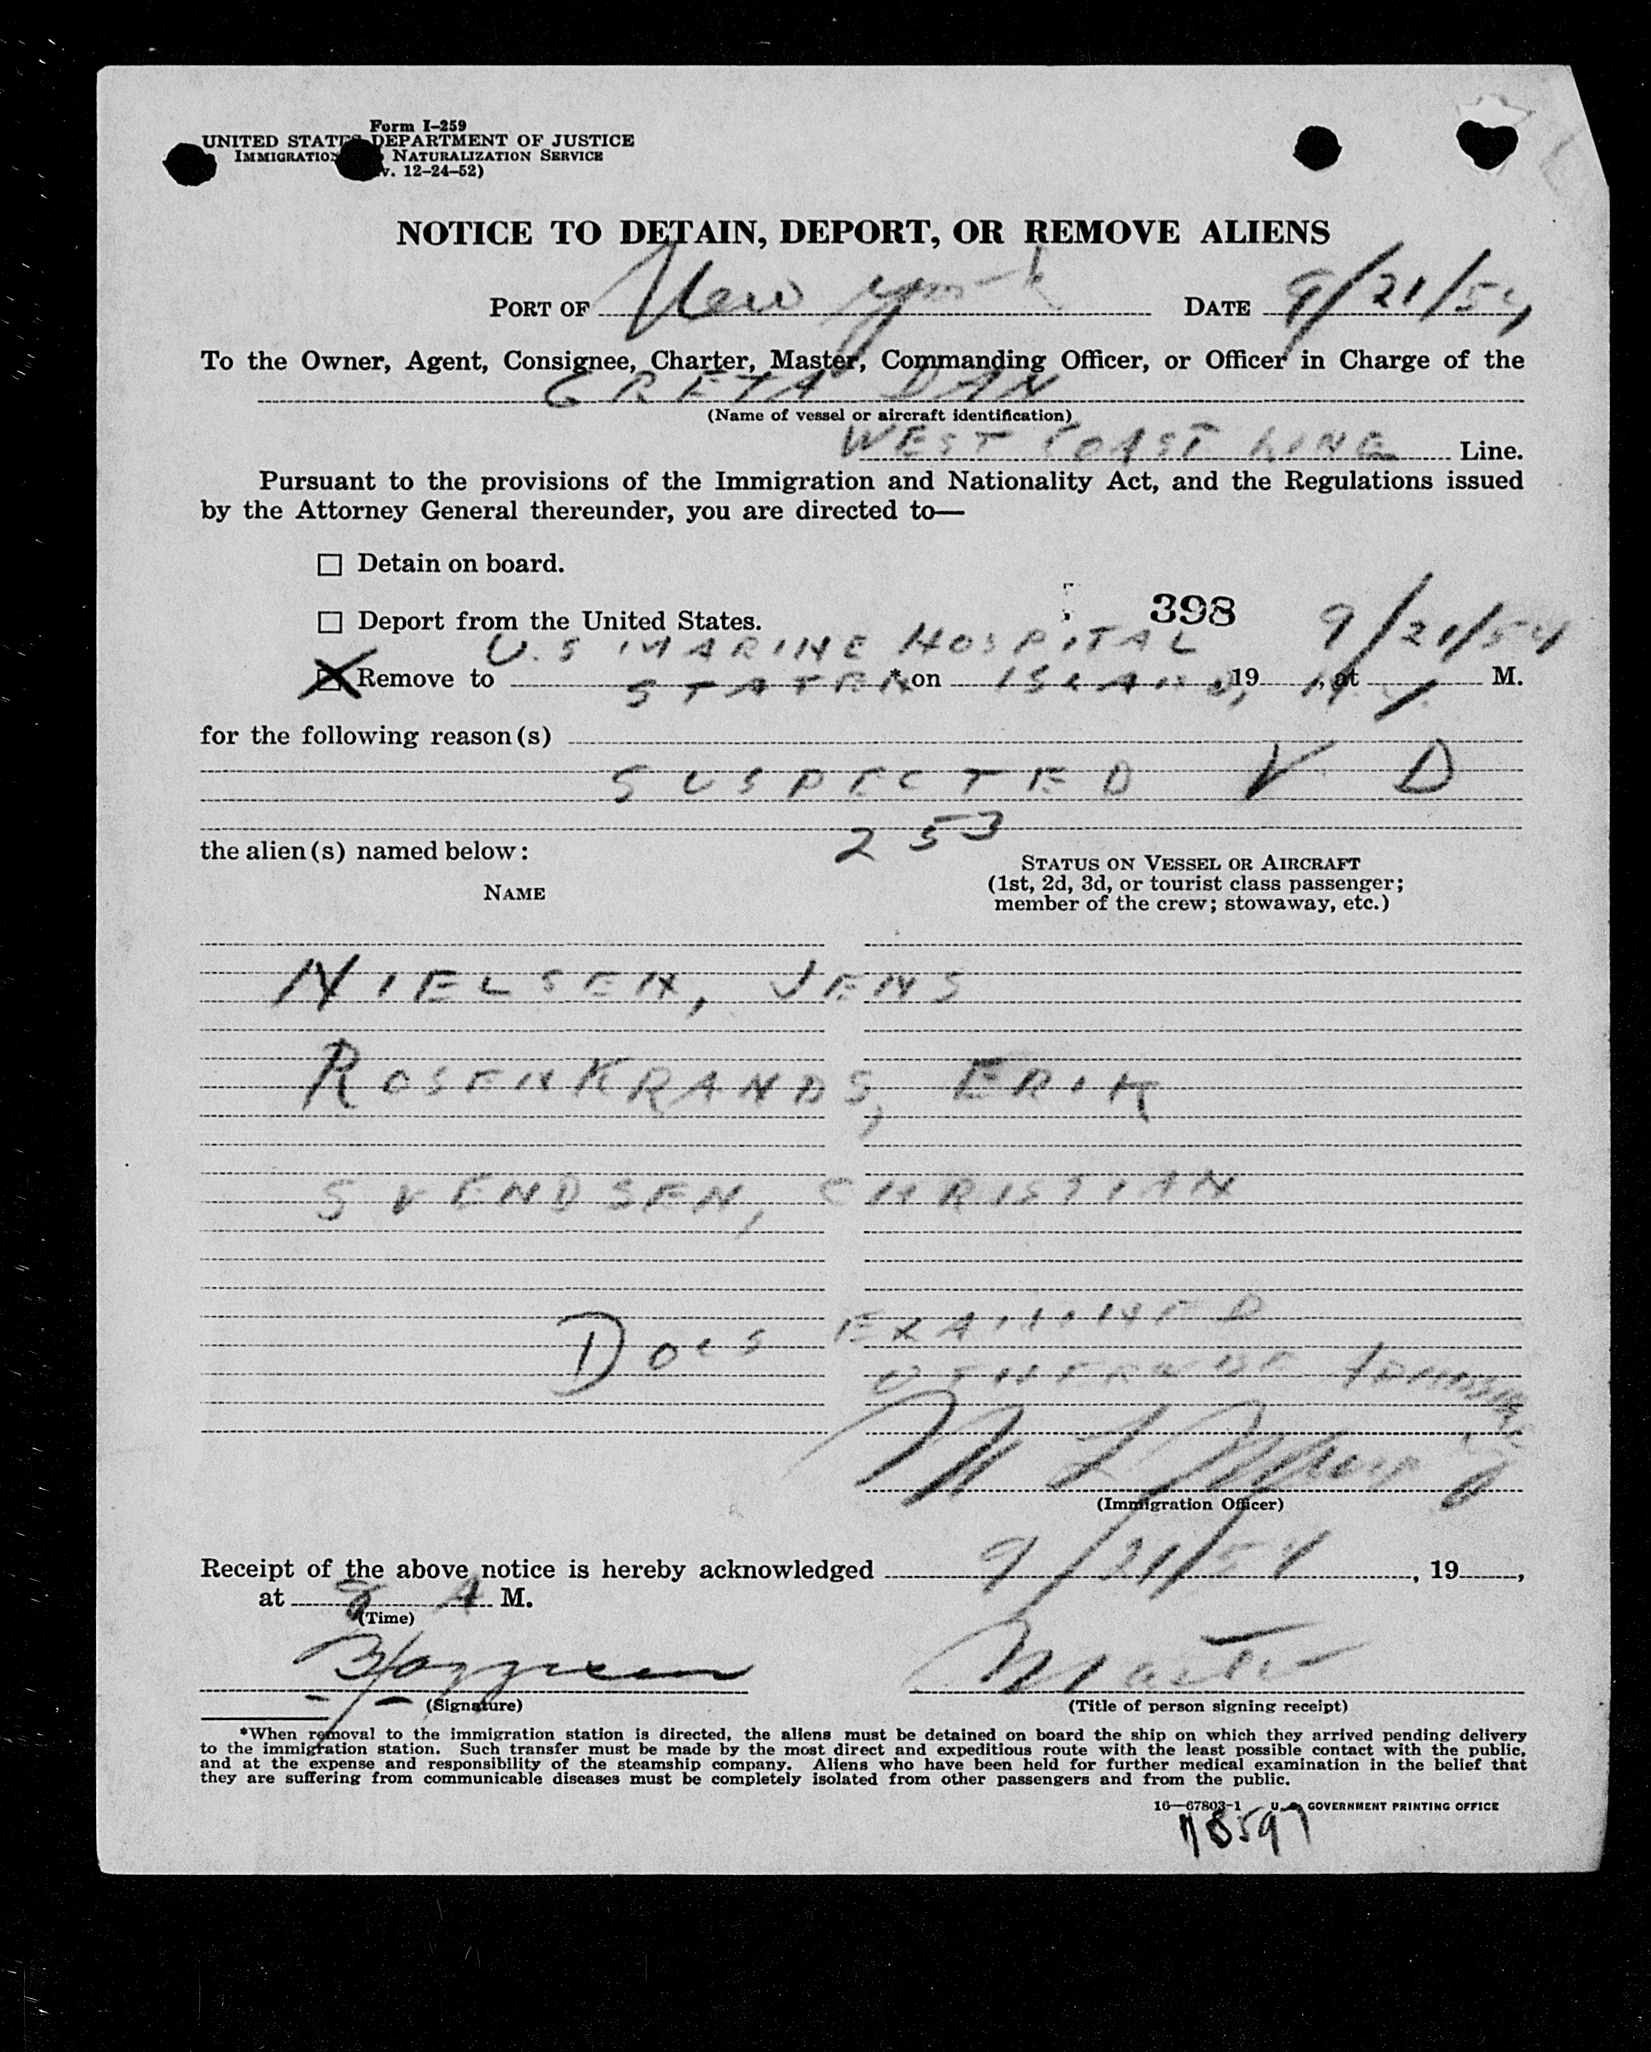 Form I–259
UNITED STATES DEPARTMENT OF JUSTICE
IMMIGRATION NATURALIZATION SERVICE
v. 12–24–52)
NOTICE TO DETAIN, DEPORT, OR REMOVE ALIENS
PORT OF New York DATE 9/21/54
To the Owner, Agent, Consignee, Charter, Master, Commanding Officer, or Officer in Charge of the
GRETA DAN
(Name of vessel or aircraft identification)
WEST COAST LINE Line.
Pursuant to the provisions of the Immigration and Nationality Act, and the Regulations issued
by the Attorney General thereunder, you are directed to—
☐ Detain on board.
☐ Deport from the United States. 398
U.S MARINE HOSPITAL 9/21/54
☒ Remove to STATEN * on ISLAND, 19 , at N.Y. M.
for the following reason(s)
SUSPECTED V D
253
the alien(s) named below:
NAME
STATUS ON VESSEL OR AIRCRAFT
(1st, 2d, 3d, or tourist class passenger;
member of the crew; stowaway, etc.)
NIELSEN, JENS
ROSENKRANDS, ERIK
SVENDSEN, CHRISTIAN
DOCS EXAMINED
OTHERWISE
(Immigration Officer)
Receipt of the above notice is hereby acknowledged 9/21/54, 19 ,
at 9 A M.
(Time)
Master
(Signature)
(Title of person signing receipt)
*When removal to the immigration station is directed, the aliens must be detained on board the ship on which they arrived pending delivery
to the immigration station. Such transfer must be made by the most direct and expeditious route with the least possible contact with the public,
and at the expense and responsibility of the steamship company. Aliens who have been held for further medical examination in the belief that
they are suffering from communicable diseases must be completely isolated from other passengers and from the public.
16—67803-1 U. S. GOVERNMENT PRINTING OFFICE